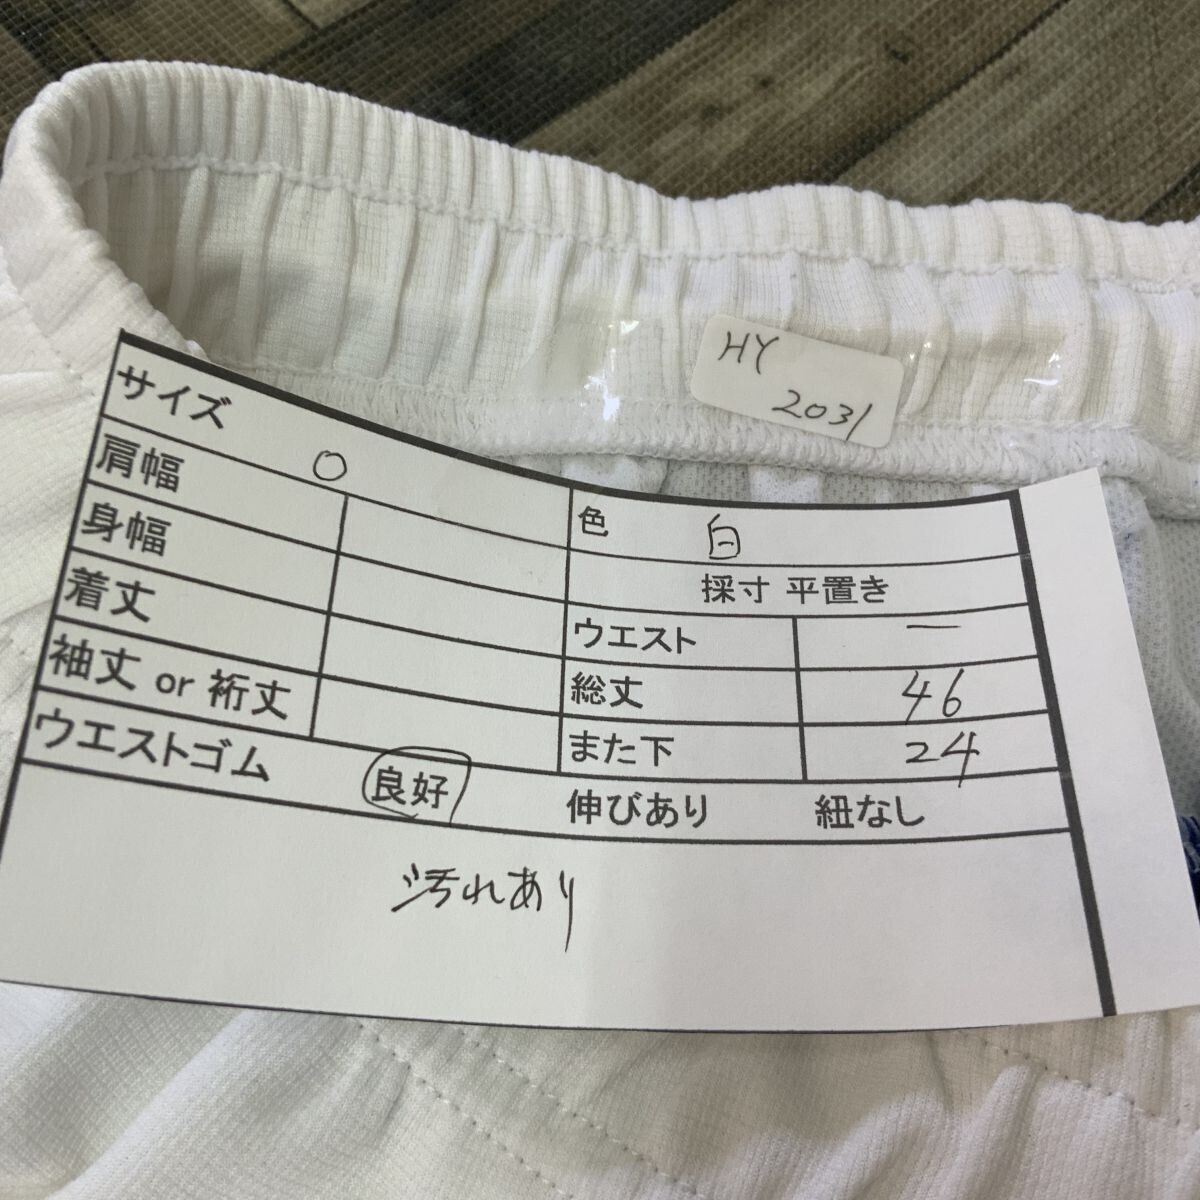 HY
2031
サイズ O
肩幅
身幅
着丈
袖丈 or 裄丈
色 白
採寸 平置き
ウエスト ー
総丈 46
また下 24
ウエストゴム 良好 伸びあり 紐なし
汚れあり